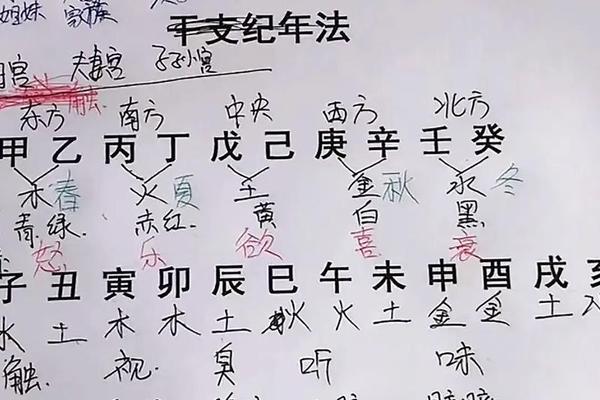 姐妹 家族
干支纪年法
宫 夫妻宫 子孙宫
触
东方 南方 中央 西方 北方
甲乙丙丁戊己庚辛壬癸
木 春 火 夏 土 金 秋 水 冬
青.绿. 赤红. 黄 白 黑
怒 乐 欲 喜 哀
子丑寅卯辰巳午未申酉戌亥
水 土 木 木 土 火 火 土 金 金 土
触. 视. 臭 听 味